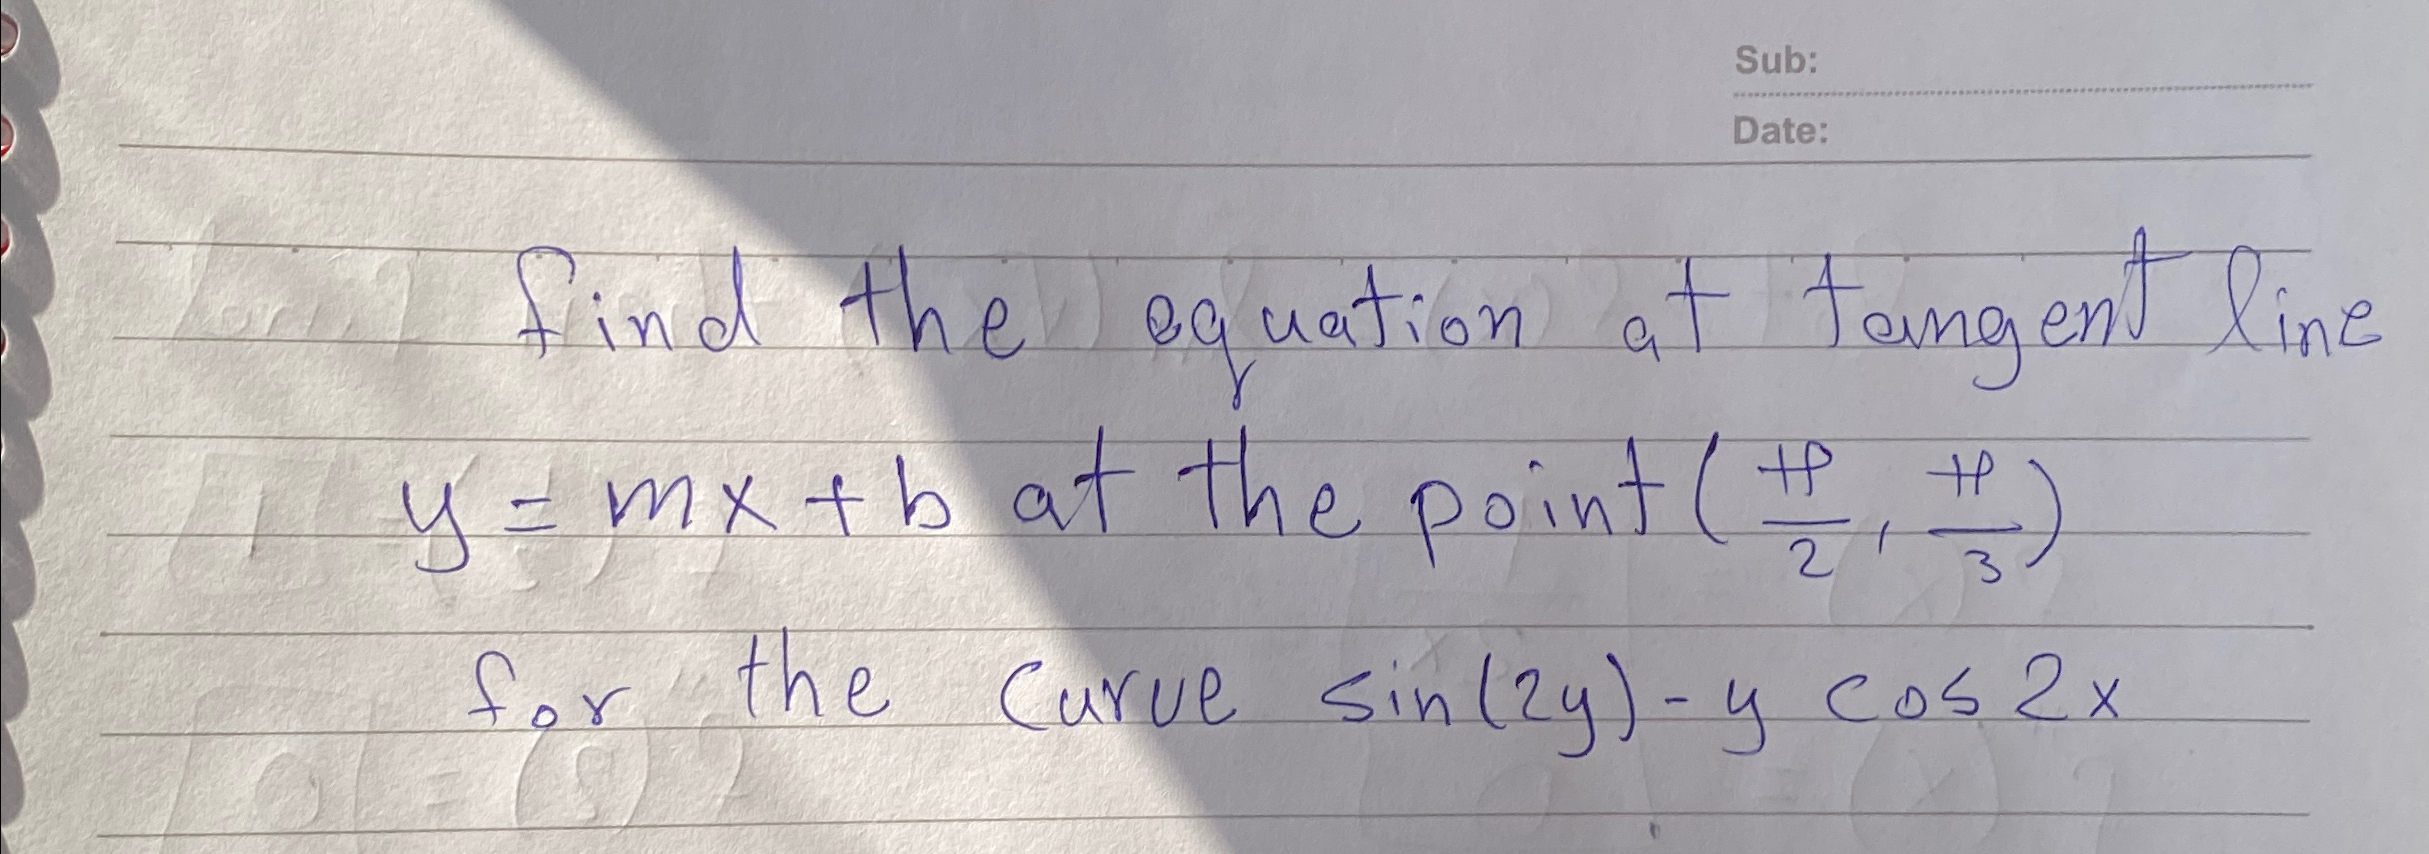 Sub:
Date:
find the equation at tangent line
y = mx + b at the point (π/2, π/3)
for the curve sin(2y) - y cos 2x